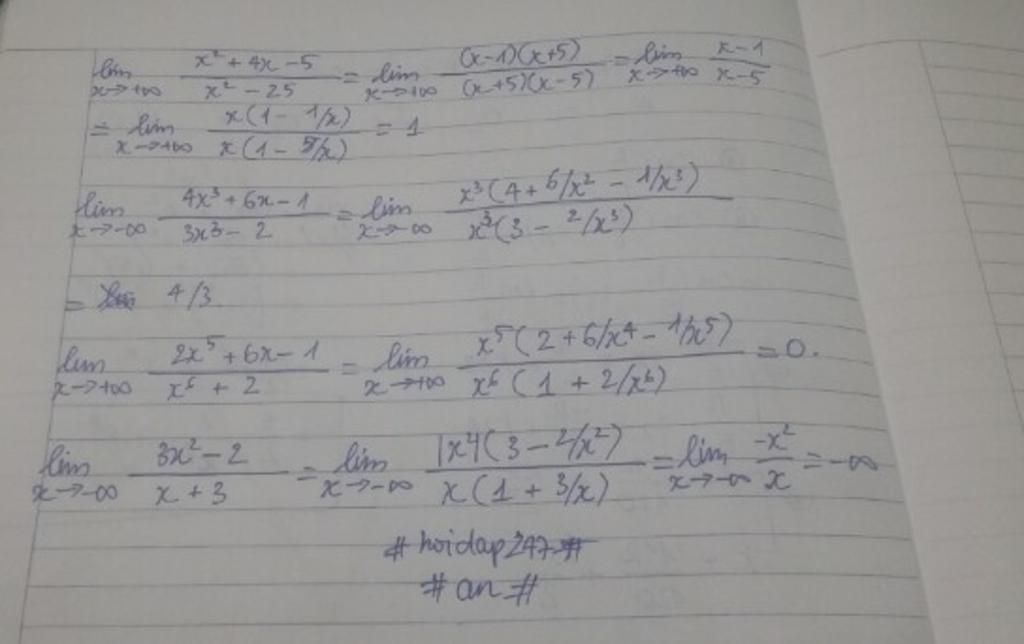 lim x→+∞ (x² + 4x - 5)/(x² - 25) = lim x→+∞ ((x-1)(x+5))/((x+5)(x-5)) = lim x→+∞ (x-1)/(x-5)
= lim x→+∞ (x(1 - 1/x))/(x(1 - 5/x)) = 1
lim x→-∞ (4x³ + 6x - 1)/(3x³ - 2) = lim x→-∞ (x³(4 + 6/x² - 1/x³))/(x³(3 - 2/x³))
= 4/3
lim x→+∞ (2x⁵ + 6x - 1)/(x⁶ + 2) = lim x→+∞ (x⁵(2 + 6/x⁴ - 1/x⁵))/(x⁶(1 + 2/x⁶)) = 0.
lim x→-∞ (3x² - 2)/(x + 3) = lim x→-∞ ((3 - 2/x²))/(x(1 + 3/x)) = lim x→-∞ (-x²)/x = -∞
# hoidap247 #
# an #